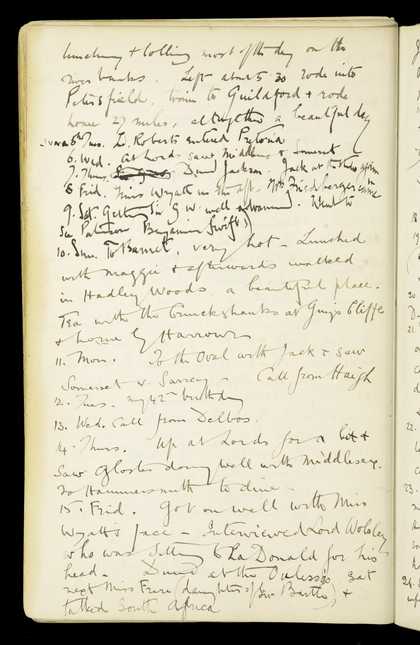 lunching & lolling most of the day on the
river banks. Left about 5 30 rode into
Petersfield, train to Guildford & rode
home 27 miles, altogether a beautiful day
June 5th Tues. L. Roberts entered Pretoria
6. Wed. at Lords saw Middlesex & Somerset
7. Thurs. Dined Jackson. Jack at
8 Frid. Miss Wyatt in the aft. Mrs Friedberger came in
9. Sat. Getting Sir G W well advanced. Went to
see Paterson Benjamin Swift)
10. Sun. To Barnet, very hot - Lunched
with Maggie & afterwards walked
in Hadley Woods a beautiful place.
Tea with the Cruickshanks at Guys Cliffe
& home by Harrow
11. Mon. To the Oval with Jack & saw
Somerset v. Surrey - Call from Haigh
12. Tues. my 42nd birthday
13. Wed. Call from Delbos.
14. Thurs. Up at Lords for a bit &
saw Gloster doing well with Middlesex.
To Hammersmith to dine -
15. Frid. Got on well with Miss
Wyatt's face - Interviewed Lord Wolseley
who was sitting to Donald for his
head. Dined at the Ulysses, sat
next Miss Frere (daughter of Sir Bartle) &
talked South Africa